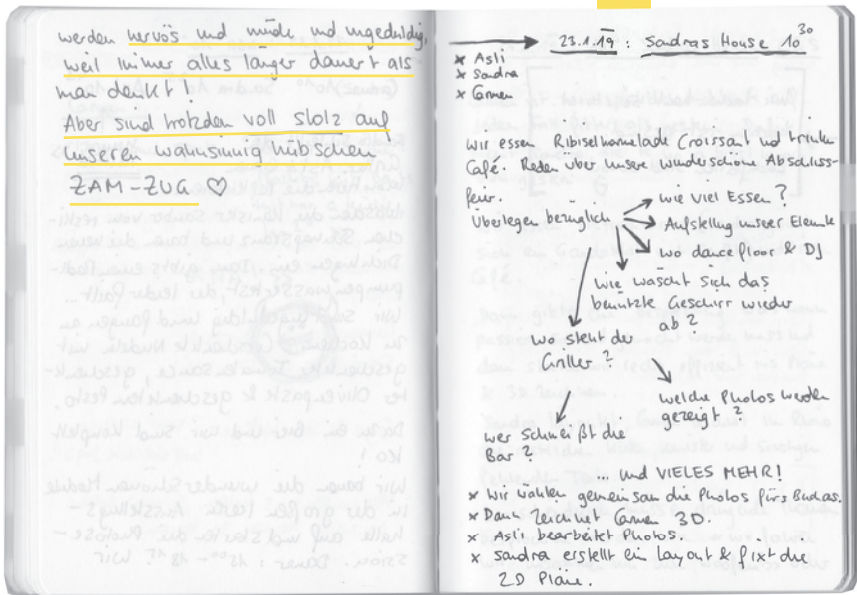 werden nervös und müde und ungeduldig,
weil immer alles länger dauert als
man denkt!
Aber sind trotzdem voll stolz auf
unseren wahnsinnig hübschen
ZAM-ZUG ♡
→ 23.1.19 : Sandras House 10³⁰
× Asli
× Sandra
× Carmen
Wir essen Ribiselmarmelade Croissant und trinken
Café. Reden über unsere wunderschöne Abschluss-
feier.
Überlegen bezüglich
→ wie viel Essen?
→ Aufstellung unserer Elemente
→ wo dancefloor & DJ
wie wäscht sich das
benützte Geschirr wieder
ab?
wo steht der
Griller?
welche Photos werden
gezeigt?
wer schmeißt die
Bar?
... und VIELES MEHR!
× Wir wählen gemeinsam die Photos fürs
× Dann zeichnet Carmen 3D.
× Asli bearbeitet Photos.
× Sandra erstellt ein Layout & fixt die
2D Pläne.